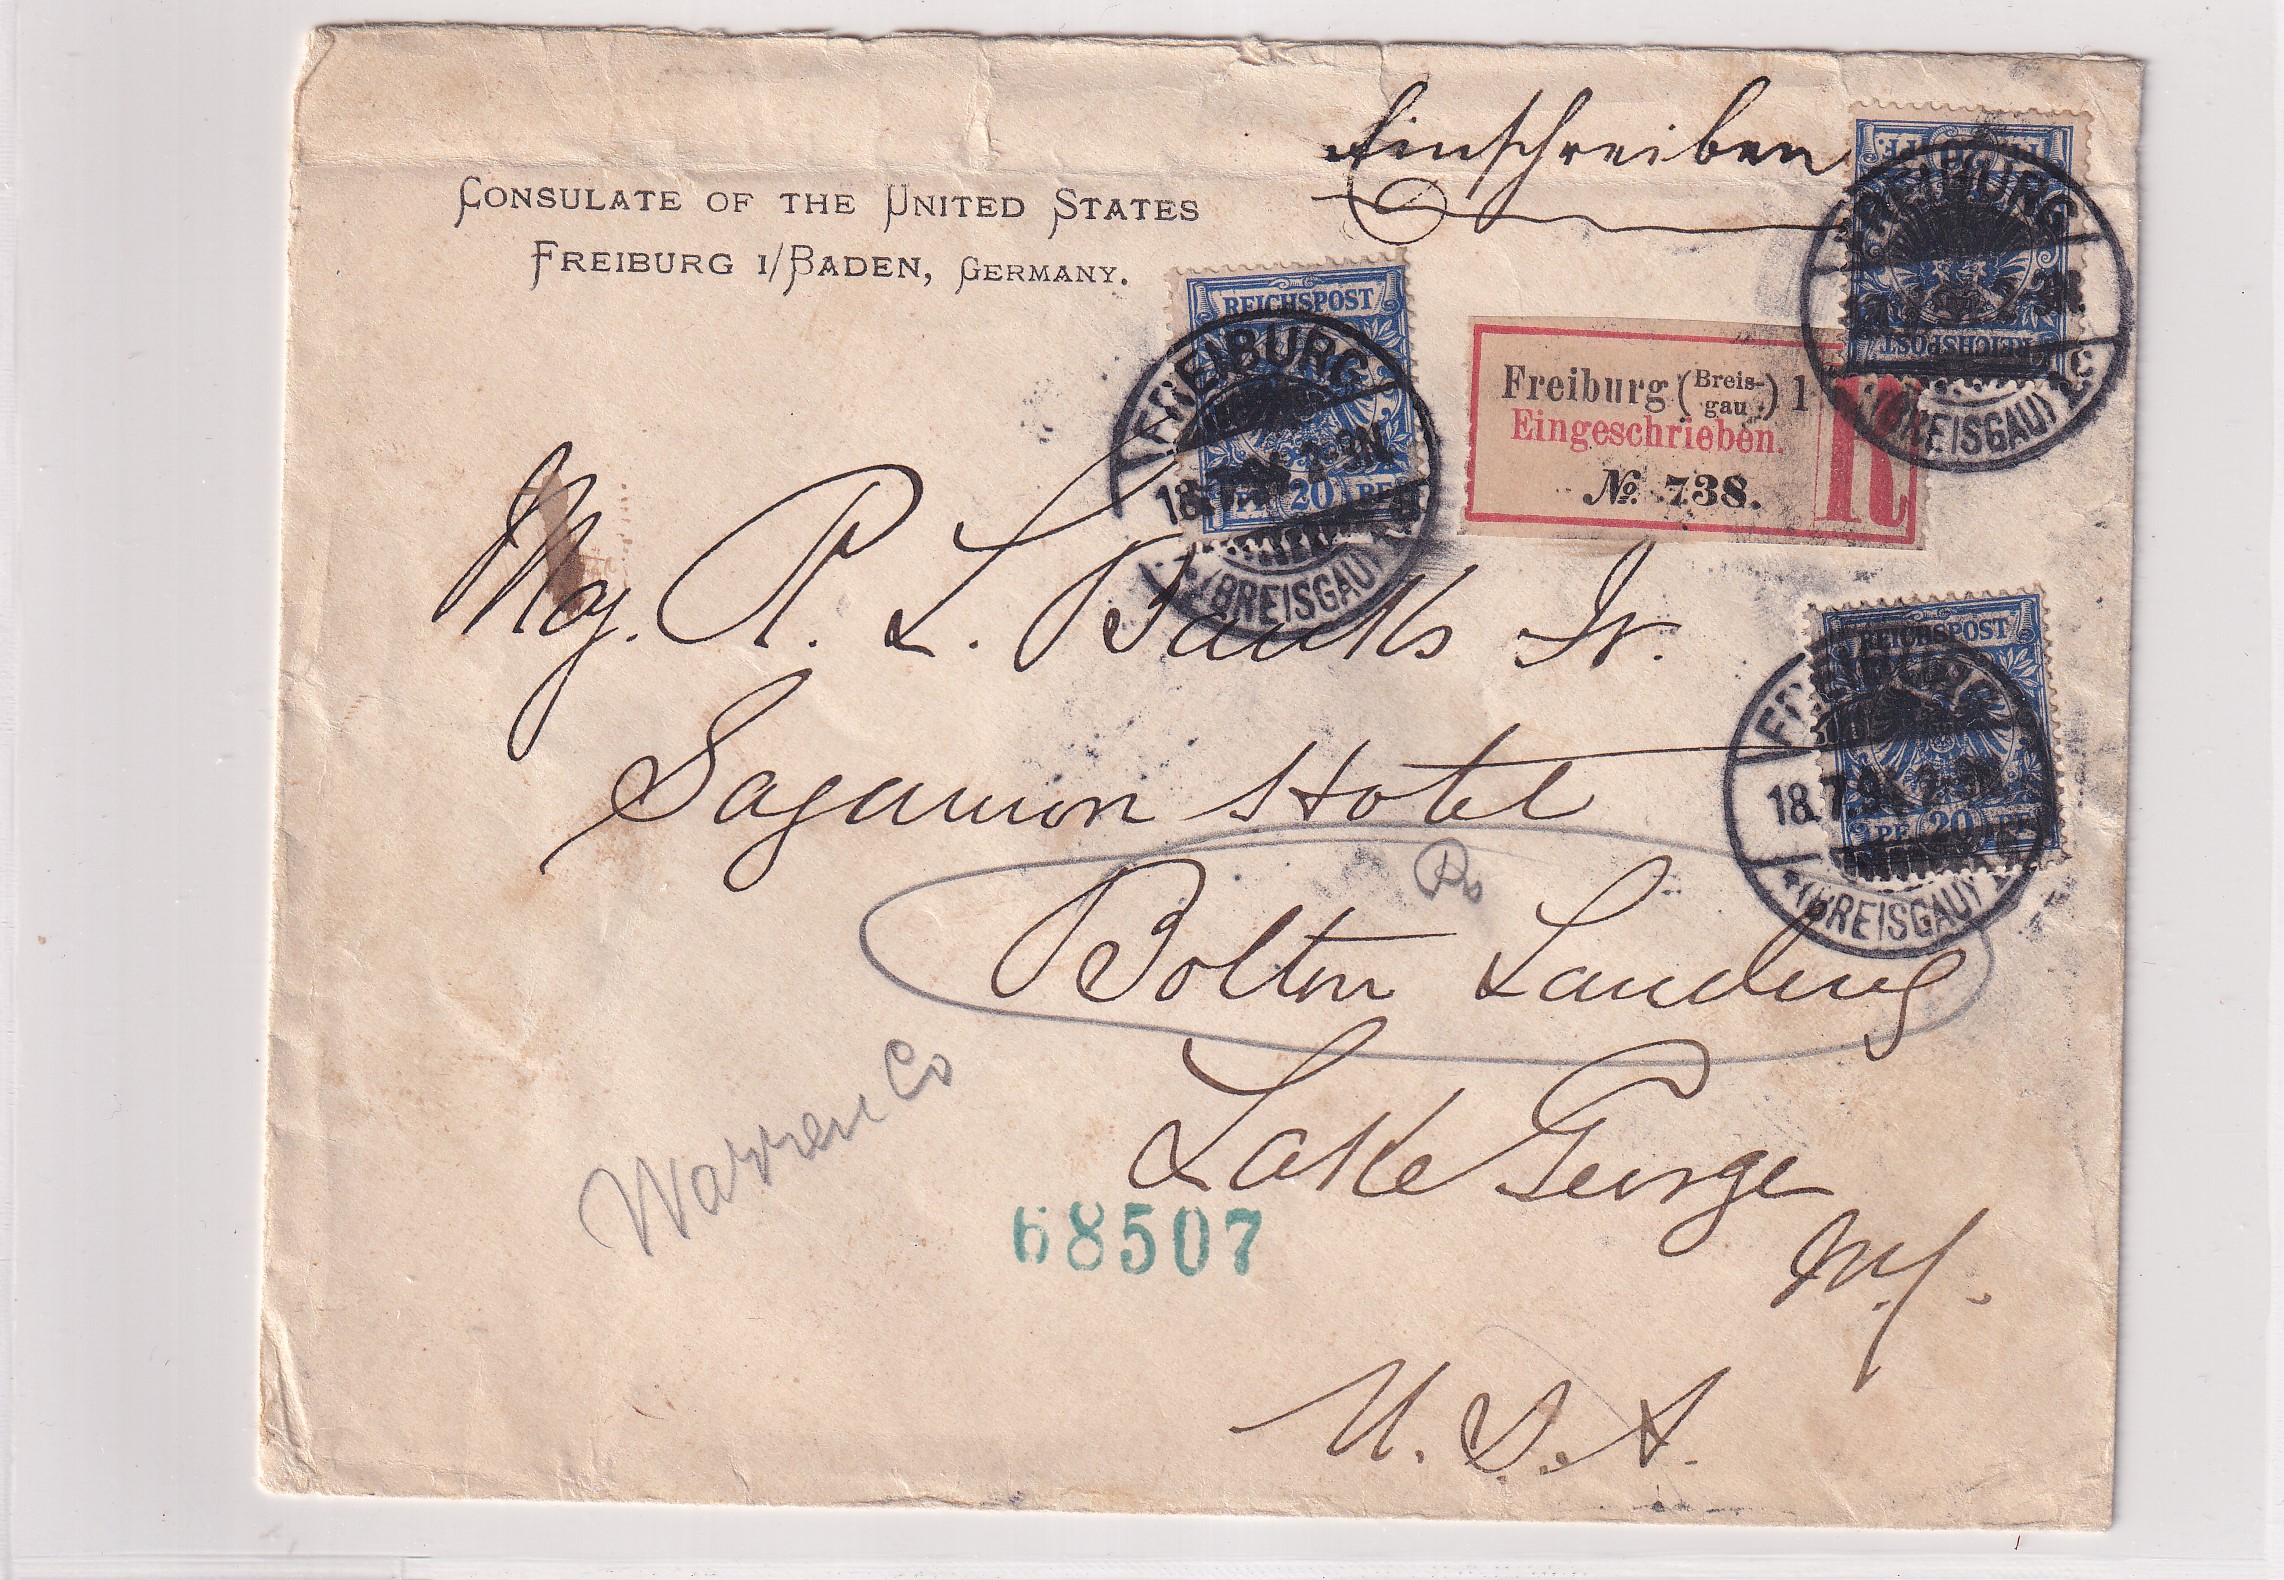 Einschreiben
CONSULATE OF THE UNITED STATES
FREIBURG I/BADEN, GERMANY.
REICHSPOST
PF 20 PF
FREIBURG
18.7.94 2-3N
* (BREISGAU)
Freiburg (Breis-
gau) 1
Eingeschrieben.
№ 738.
R
REICHSPOST
FREIBURG
(BREISGAU)
Maj. R. L. Banks Jr.
REICHSPOST
PF 20 PF
18.7.94 2-3N
* (BREISGAU)
Sagamon Hotel
Po
Bolton Landing
Warren Co
Lake George
68507
N.Y.
U.S.A.